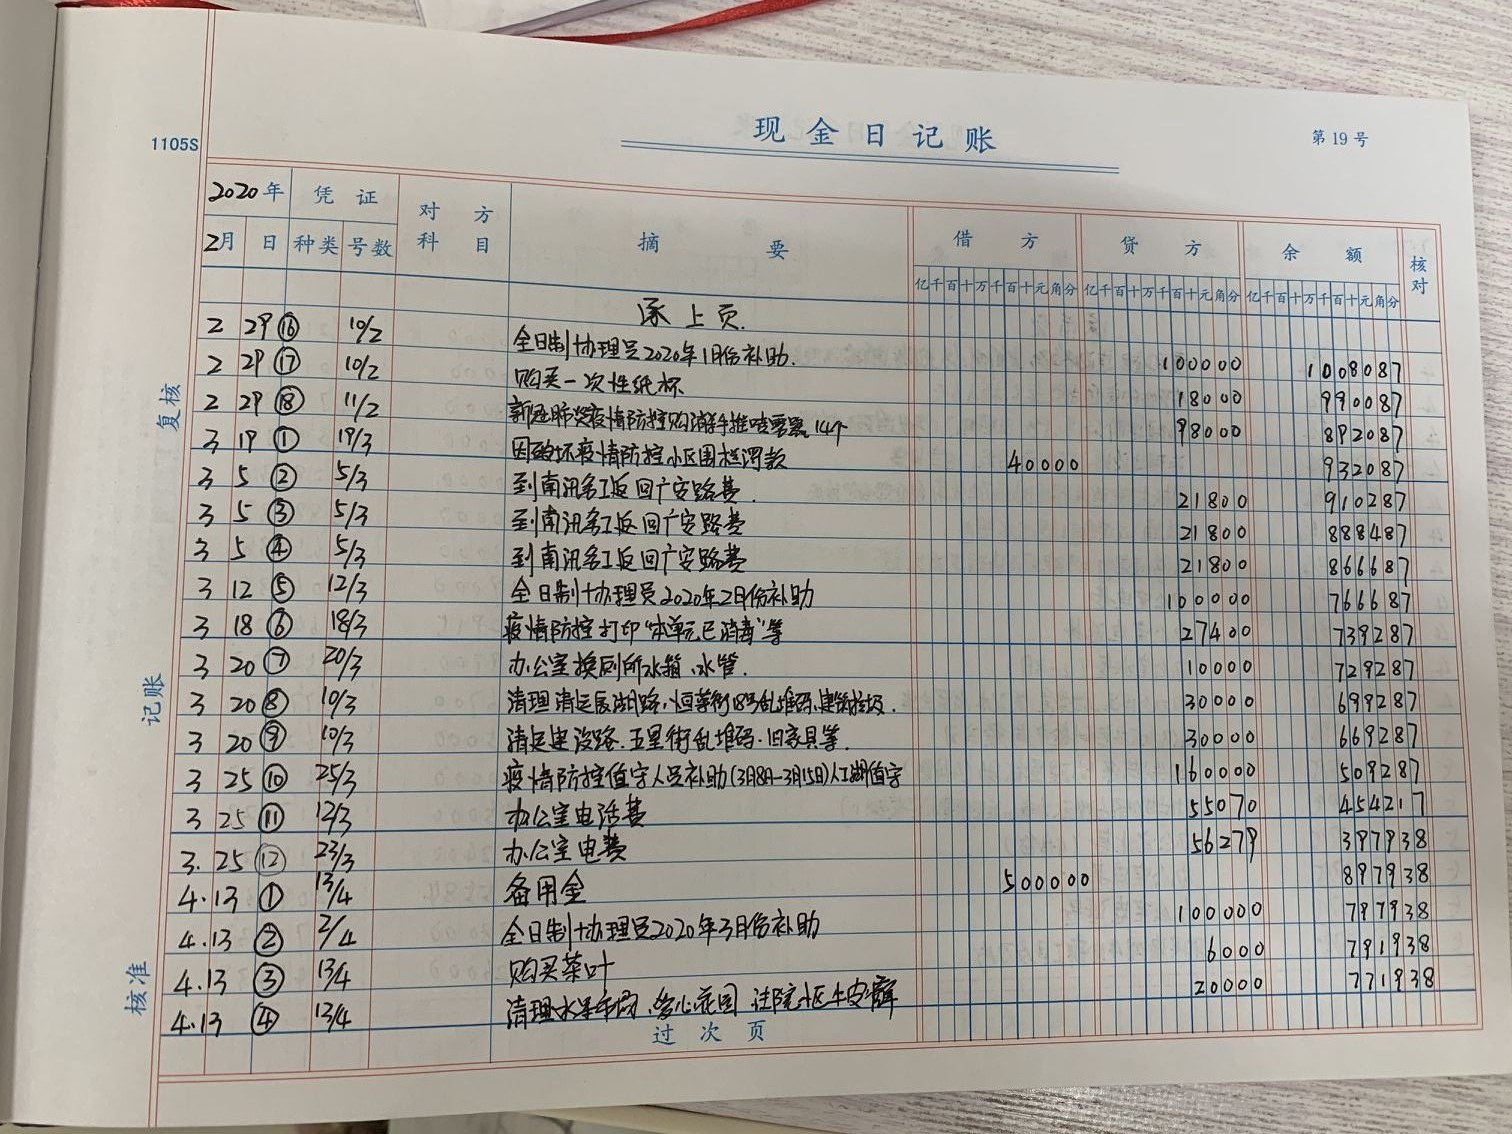 现金日记账
1105S
第19号
2020年 凭证 对方科目 摘要 借方 贷方 余额 核对
2月 日 种类 号数 亿千百十万千百十元角分 亿千百十万千百十元角分 亿千百十万千百十元角分
承上页.
2 29 ⑯ 10/2 全日制协理员2020年1月份补助. 100000 1008087
2 29 ⑰ 10/2 购买一次性纸杯 18000 990087
2 29 ⑱ 11/2 新冠肺炎疫情防控购消手推喷雾器14个 98000 892087
3 19 ① 19/3 因破坏疫情防控小区围栏罚款 40000 932087
3 5 ② 5/3 到南汛务工返回广安路费. 21800 910287
3 5 ③ 5/3 到南汛务工返回广安路费 21800 888487
3 5 ④ 5/3 到南汛务工返回广安路费 21800 866687
3 12 ⑤ 12/3 全日制协理员2020年2月份补助 100000 766687
3 18 ⑥ 18/3 疫情防控打印“本单元已消毒”等 27400 739287
3 20 ⑦ 20/3 办公室换厕所水箱、水管. 10000 729287
3 20 ⑧ 10/3 清理清运 湖路、恒 街 号乱堆码、建筑垃圾. 30000 699287
3 20 ⑨ 10/3 清运建设路、五星街乱堆码、旧家具等. 30000 669287
3 25 ⑩ 25/3 疫情防控值守人员补助(3月8日-3月15日)人工湖值守 160000 509287
3 25 ⑪ 12/3 办公室电话费 55070 454217
3. 25 ⑫ 23/3 办公室电费 56279 397938
4. 13 ① 13/4 备用金 500000 897938
4. 13 ② 2/4 全日制协理员2020年3月份补助 100000 797938
4. 13 ③ 13/4 购买茶叶 6000 791938
4. 13 ④ 13/4 清理水果市场、爱心花园、法院小区牛皮癣 20000 771938
过次页
复核
记账
核准